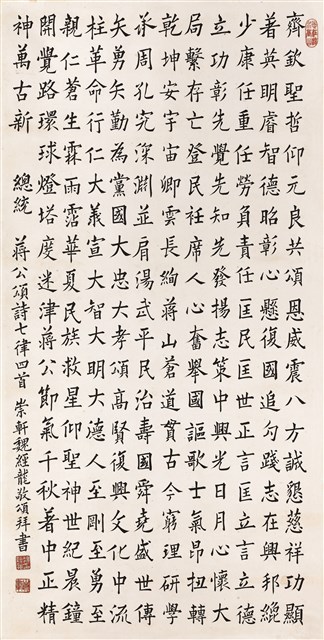 齊欽聖哲仰元良共頌恩威震八方誠懇慈祥功顯
著英明睿智德昭彰心懸復國追勾踐志在興邦繩
少康任重任勞負責任匡民匡世正言匡立言立德
立功彰先覺先知先發揚志策中興光日月心懷大
局繫存亡登民衽席人心奮舉國謳歌士氣昂扭轉
乾坤安宇宙卿雲長絢蔣山蒼道貫古今窮理研學
承周孔究深淵並肩湯武平民治壽國舜堯盛世傳
矢勇矢勤為黨國大忠大孝頌高賢復興文化中流
柱革命行仁大義宣大智大明大德人至剛至勇至
親仁蒼生霖雨霑華夏民族救星仰聖神世紀晨鐘
開覺路環球燈塔度迷津蔣公節氣千秋著中正精
神萬古新 總統 蔣公頌詩七律四首 崇軒魏經龍敬頌拜書